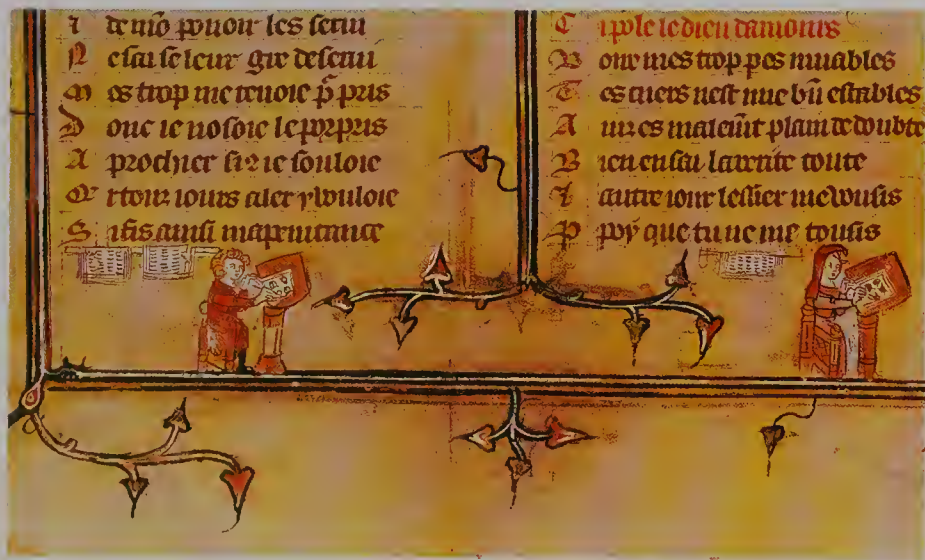 de mõ pouoir les serui
N e scai se leur gre deserui
M es trop me tenoie p̃ pris
D onc ie nosoie le porpris
A prochier si 2 ie souloie
Q r tous iours aler y vouloie
S i fis ainsi ma penitance
C i pole le dieu damours
T es cuers nest mie bñ estables
A ins es malemt plain de doubte
B ien en sai la uerite toute
autre iour lessier me vousis
P poy que tu ne me tousis